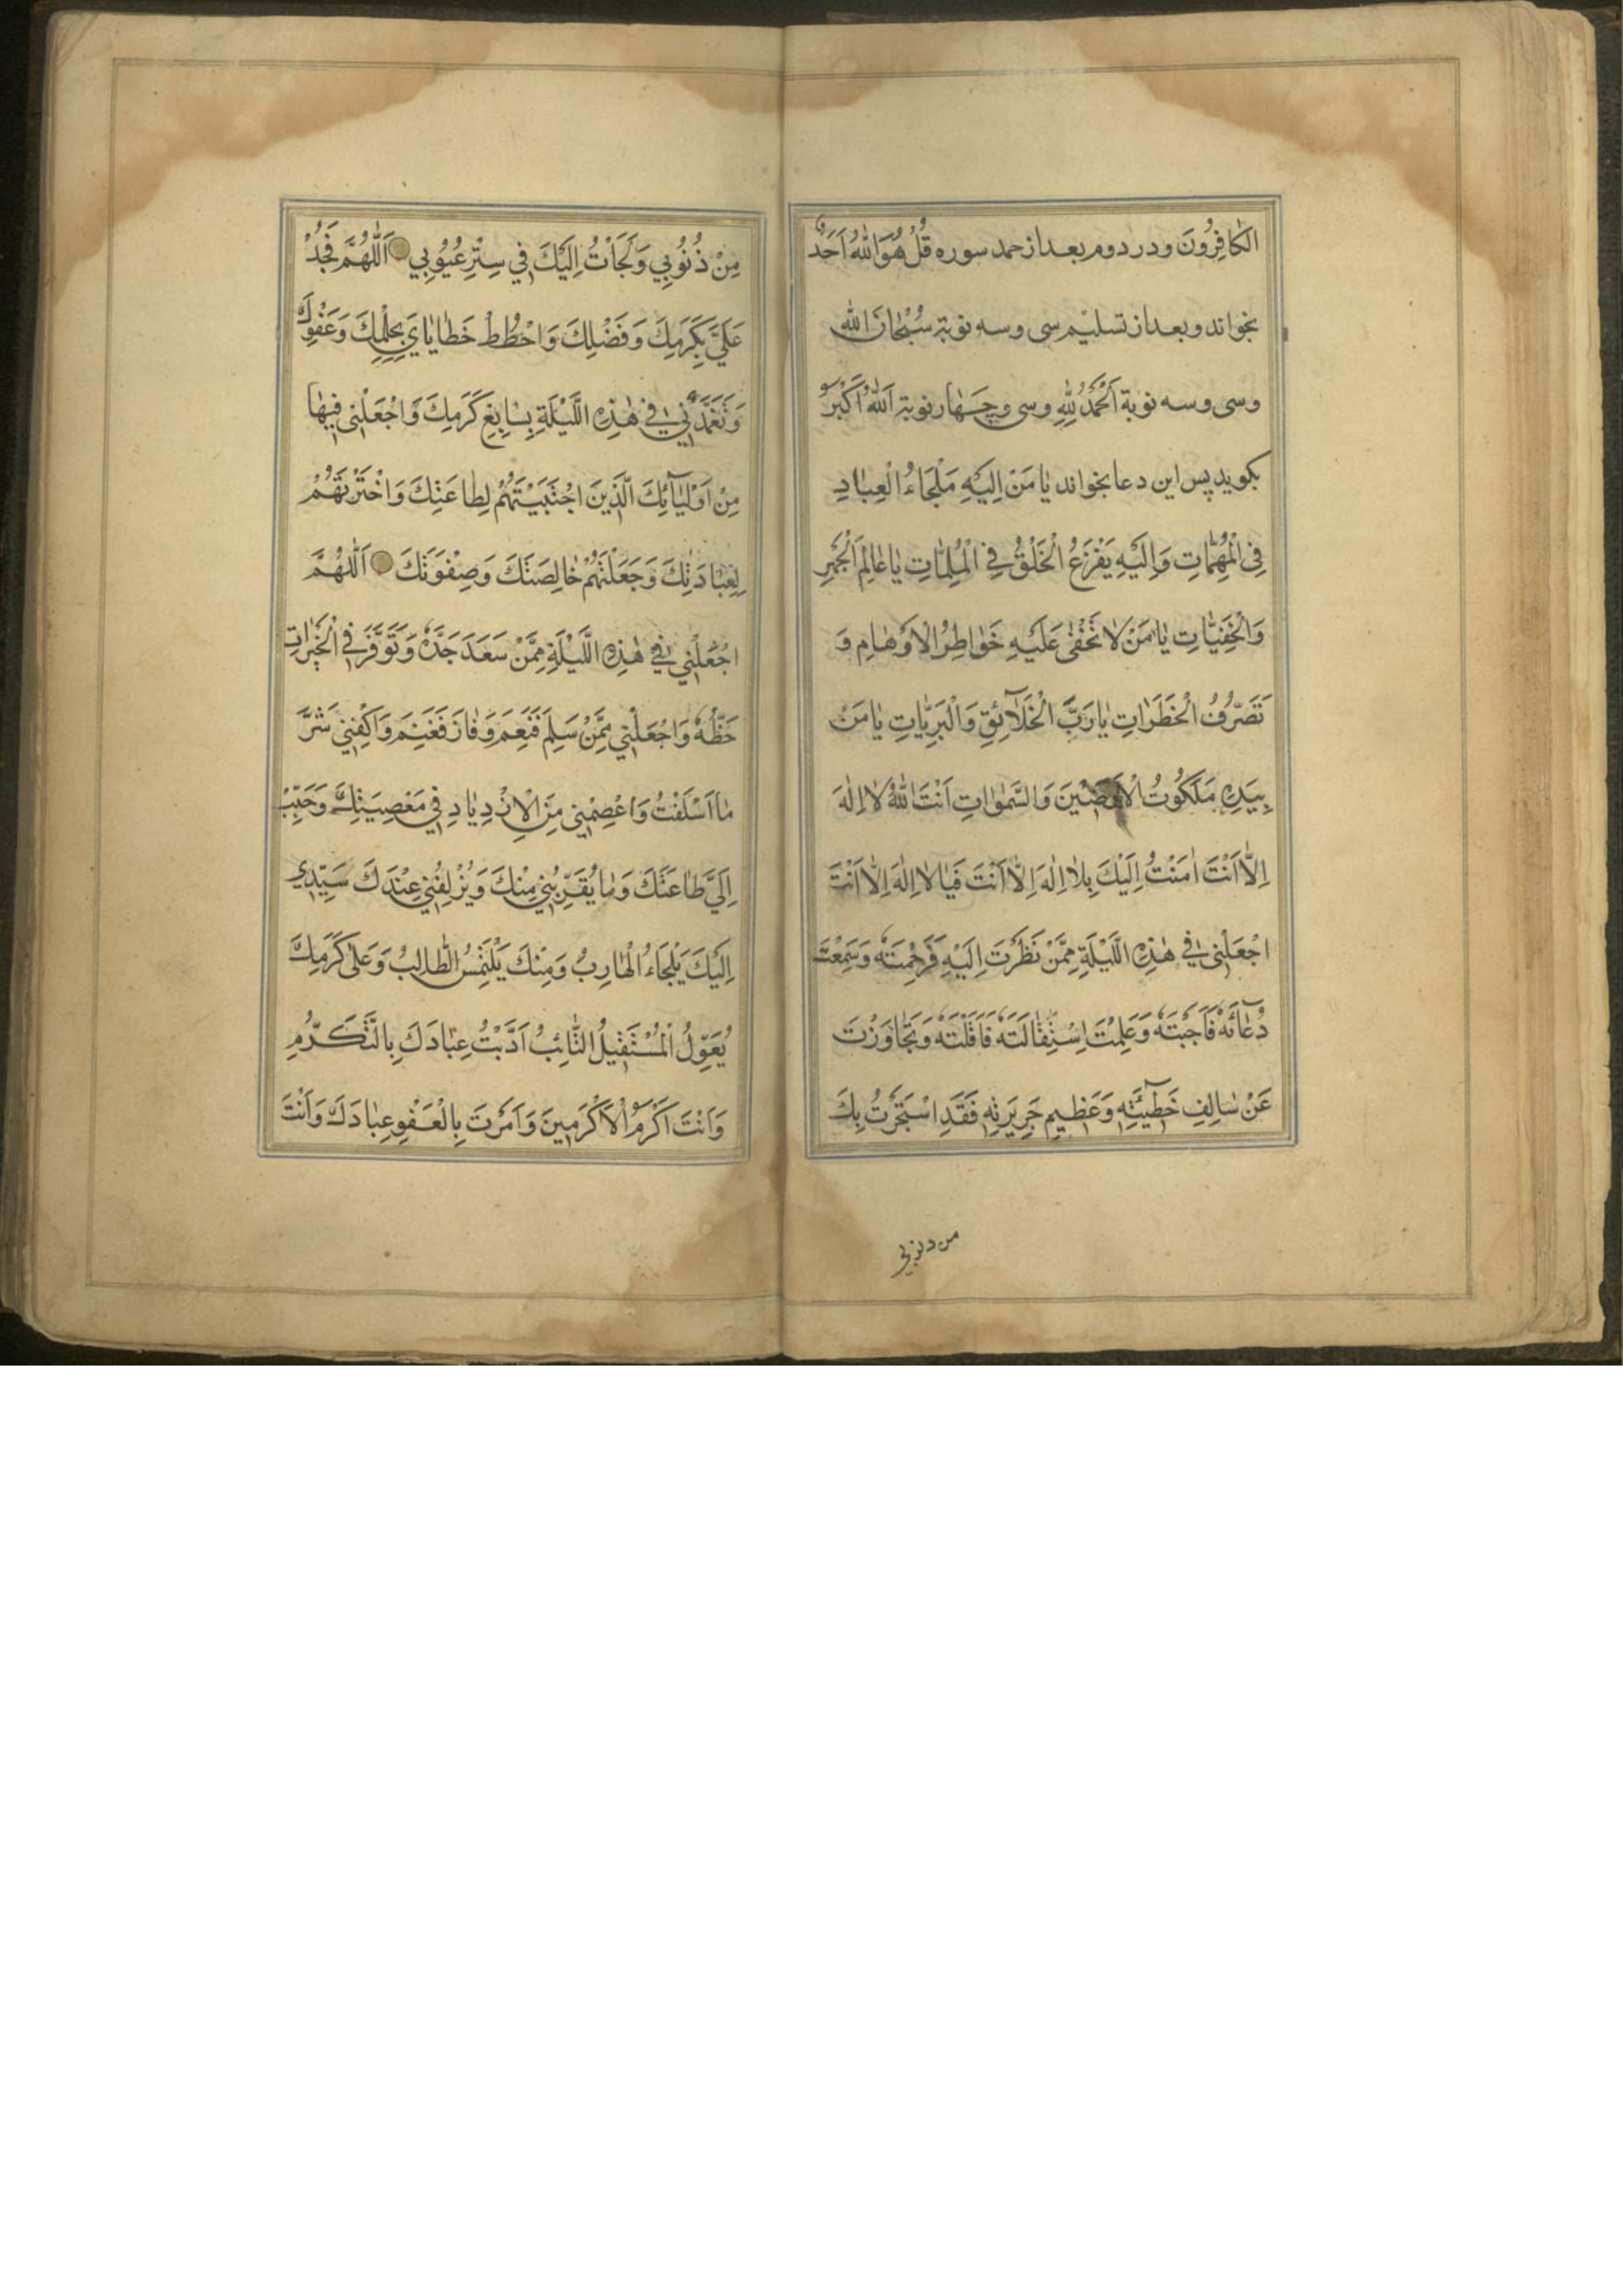 الكٰافِرُونَ و در دوم بعد از حمد سوره قُلْ هُوَ اللّٰهُ اَحَدٌ
بخواند و بعد از تسليم سى و سه نوبة سُبْحٰانَ اللّٰهِ
و سى و سه نوبة اَلْحَمْدُ لِلّٰهِ و سى و چهار نوبة اَللّٰهُ اَكْبَرُ
بكويد پس اين دعا بخواند يٰا مَنْ اِلَيْهِ مَلْجَاءُ الْعِبٰادِ
فِى الْمُهِمّٰاتِ وَاِلَيْهِ يَفْزَعُ الْخَلْقُ فِى الْمُلِمّٰاتِ يٰا عٰالِمَ الْجَهْرِ
وَالْخَفِيّٰاتِ يٰا مَنْ لٰا تَخْفٰى عَلَيْهِ خَوٰاطِرُ الْاَوْهٰامِ وَ
تَصَرُّفُ الْخَطَرٰاتِ يٰا رَبَّ الْخَلٰٓائِقِ وَالْبَرِيّٰاتِ يٰا مَنْ
بِيَدِهِ مَلَكُوتُ الْاَرَضِيْنَ وَالسَّمٰوٰاتِ اَنْتَ اللّٰهُ لٰا اِلٰهَ
اِلّٰا اَنْتَ اٰمَنْتُ اِلَيْكَ بِلٰا اِلٰهَ اِلّٰا اَنْتَ فَيٰا لٰا اِلٰهَ اِلّٰا اَنْتَ
اجْعَلْنِى فِى هٰذِهِ اللَّيْلَةِ مِمَّنْ نَظَرْتَ اِلَيْهِ فَرَحِمْتَهُ وَسَمِعْتَ
دُعٰائَهُ فَاَجَبْتَهُ وَعَلِمْتَ اِسْتِقٰالَتَهُ فَاَقَلْتَهُ وَتَجٰاوَزْتَ
عَنْ سٰالِفِ خَطٖيٓئَتِهِ وَعَظٖيمِ جَرٖيرَتِهِ فَقَدِ اسْتَجَرْتُ بِكَ
من ذنوبى
مِنْ ذُنُوبِي وَلَجَاْتُ اِلَيْكَ فِي سِتْرِ عُيُوبِي اَللّٰهُمَّ فَجُدْ
عَلَيَّ بِكَرَمِكَ وَفَضْلِكَ وَاحْطُطْ خَطٰايٰايَ بِحِلْمِكَ وَعَفْوِكَ
وَتَغَمَّدْنِي فِي هٰذِهِ اللَّيْلَةِ بِسٰابِغِ كَرَمِكَ وَاجْعَلْنِى فِيهٰا
مِنْ اَوْلِيٰآئِكَ الَّذِينَ اجْتَبَيْتَهُمْ لِطٰاعَتِكَ وَاخْتَرْتَهُمْ
لِعِبٰادَتِكَ وَجَعَلْتَهُمْ خٰالِصَتَكَ وَصِفْوَتَكَ اَللّٰهُمَّ
اجْعَلْنِي فِي هٰذِهِ اللَّيْلَةِ مِمَّنْ سَعَدَ جَدُّهُ وَتَوَفَّرَ فِى الْخَيْرٰاتِ
حَظُّهُ وَاجْعَلْنِي مِمَّنْ سَلِمَ فَنَعِمَ وَفٰازَ فَغَنِمَ وَاكْفِنِي شَرَّ
مٰا اَسْلَفْتُ وَاعْصِمْنِي مِنَ الْاِزْدِيٰادِ فِي مَعْصِيَتِكَ وَحَبِّبْ
اِلَيَّ طٰاعَتَكَ وَمٰا يُقَرِّبُنِي مِنْكَ وَيُزْلِفُنِي عِنْدَكَ سَيِّدِي
اِلَيْكَ يَلْجَاءُ الْهٰارِبُ وَمِنْكَ يَلْتَمِسُ الطّٰالِبُ وَعَلٰى كَرَمِكَ
يُعَوِّلُ الْمُسْتَقِيلُ التّٰائِبُ اَدَّبْتُ عِبٰادَكَ بِالتَّكَرُّمِ
وَاَنْتَ اَكْرَمُ الْاَكْرَمِينَ وَاَمَرْتَ بِالْعَفْوِ عِبٰادَكَ وَاَنْتَ